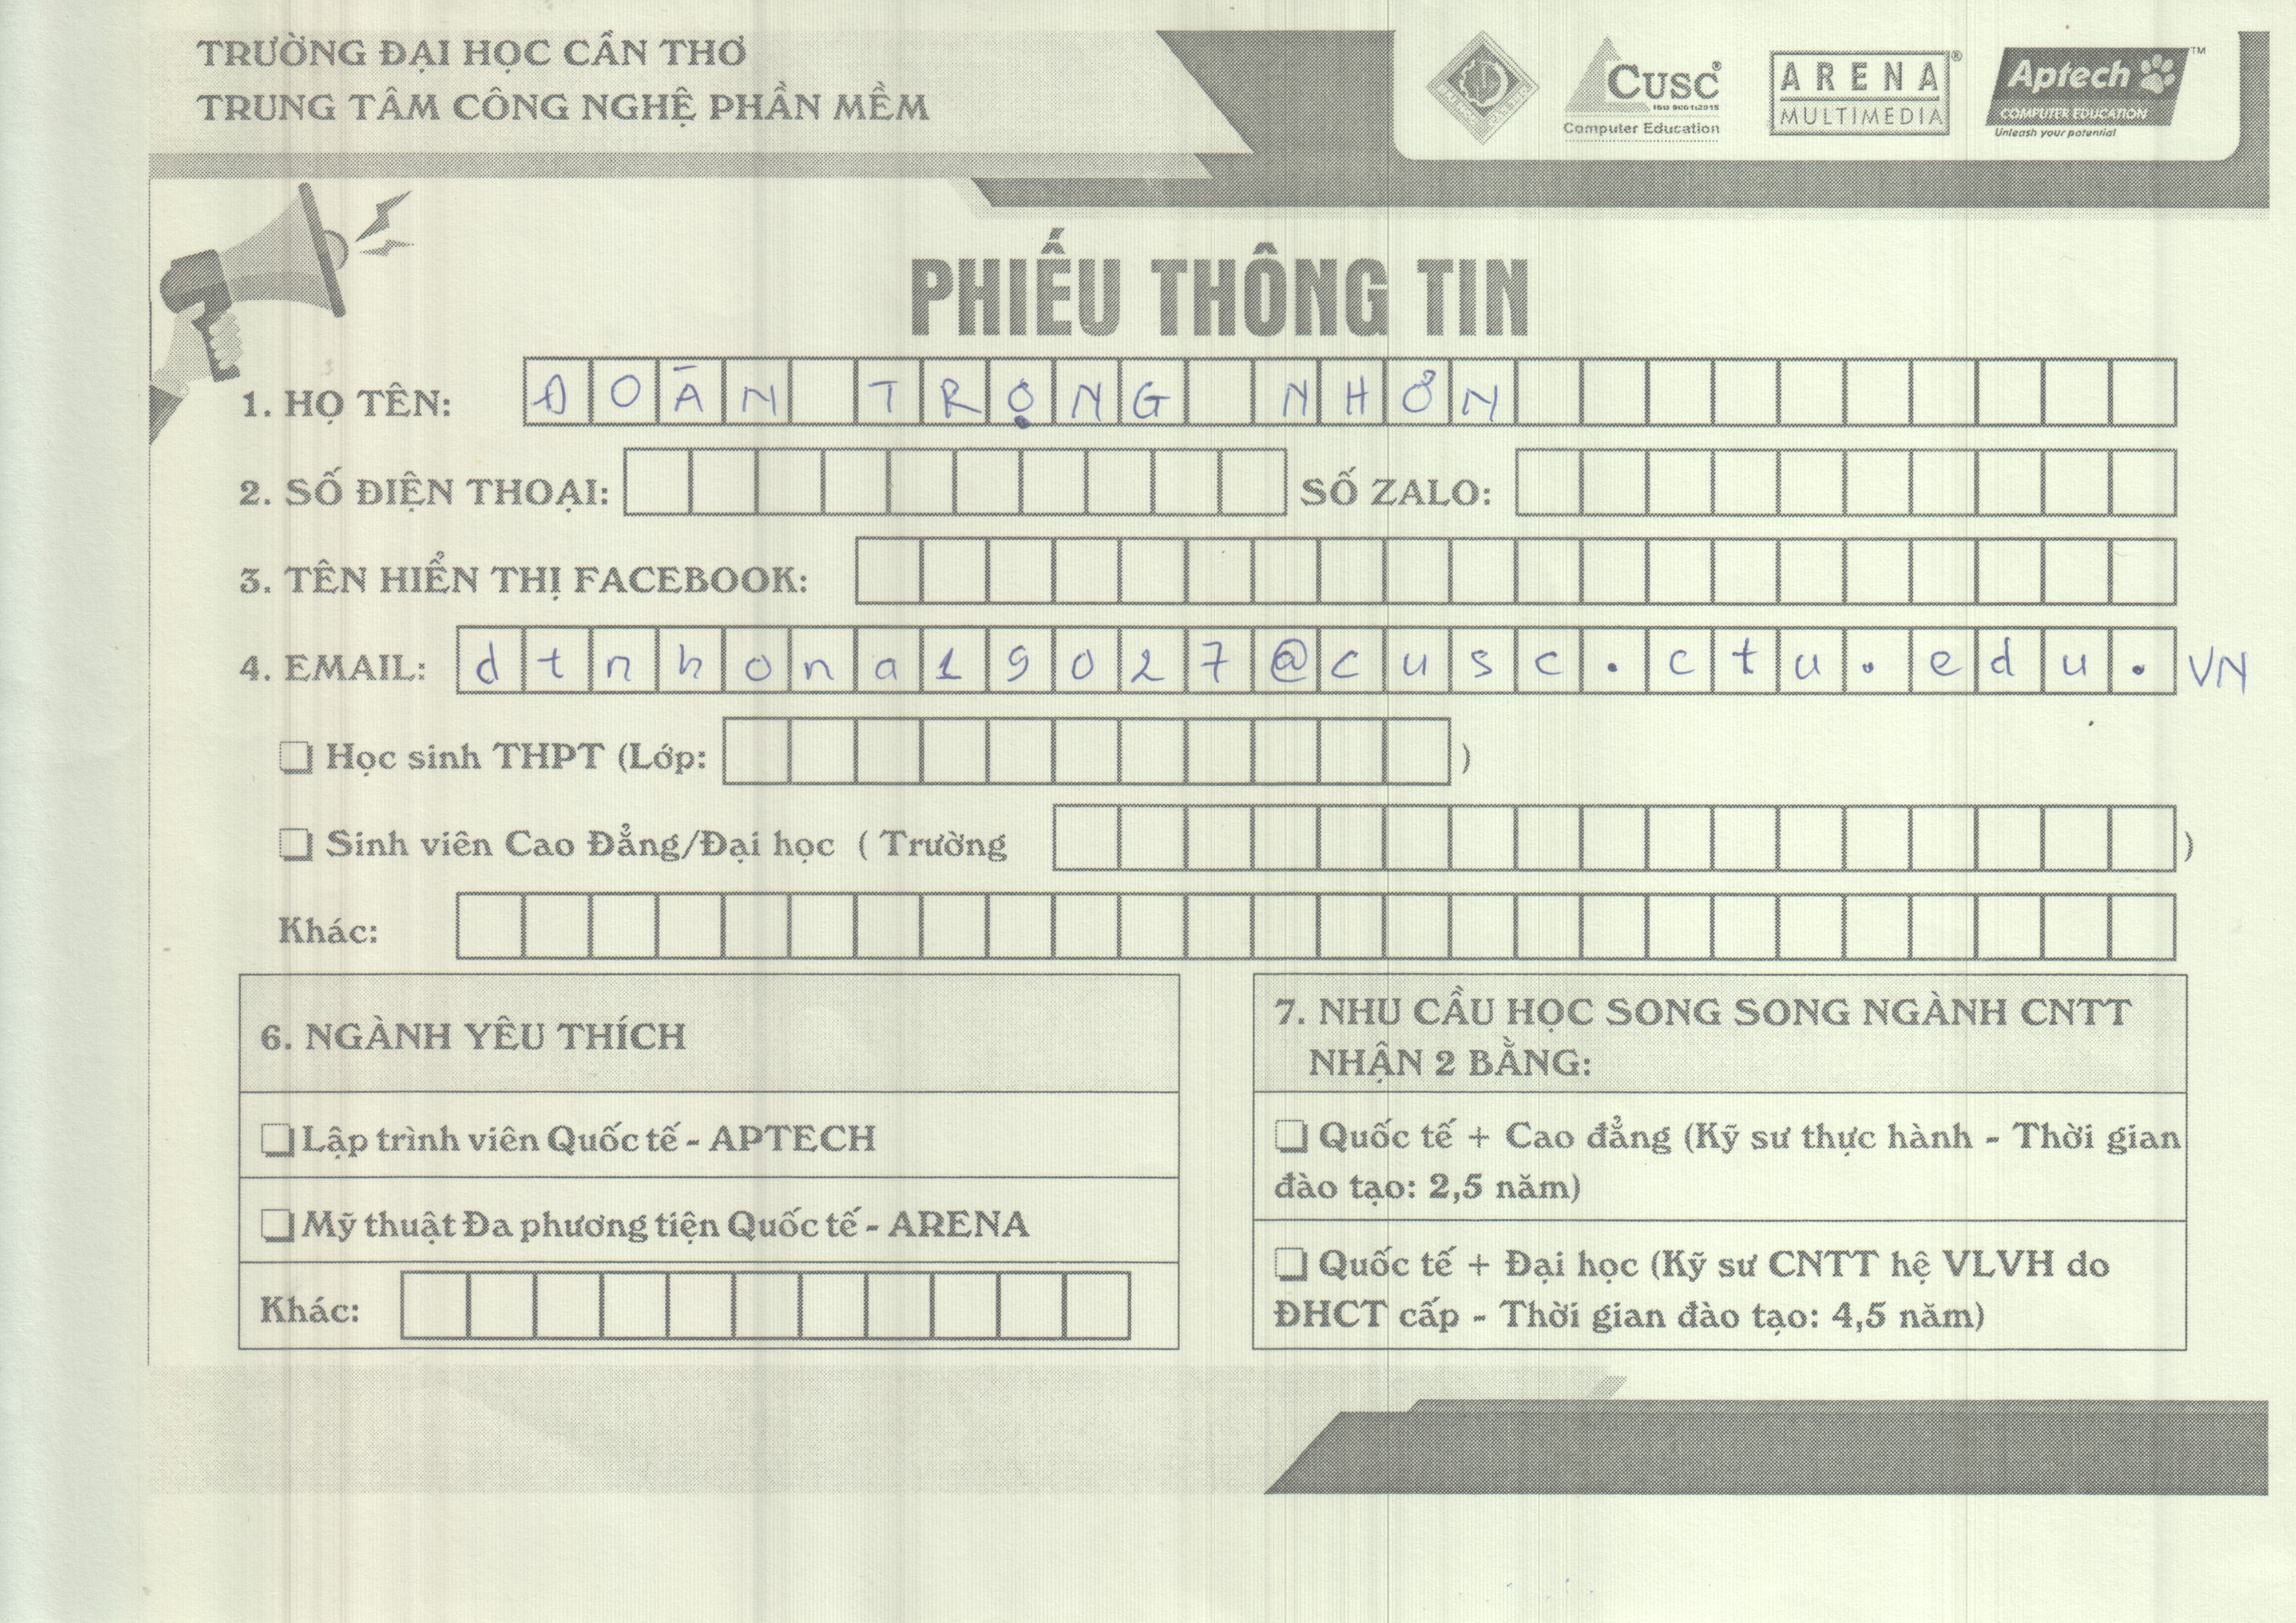 TRƯỜNG ĐẠI HỌC CẦN THƠ
TRUNG TÂM CÔNG NGHỆ PHẦN MỀM
CUSC®
ISO 9001:2015
Computer Education
ARENA®
MULTIMEDIA
Aptech™
COMPUTER EDUCATION
Unleash your potential
PHIẾU THÔNG TIN
1. HỌ TÊN: ĐOÀN TRỌNG NHƠN
2. SỐ ĐIỆN THOẠI: SỐ ZALO:
3. TÊN HIỂN THỊ FACEBOOK:
4. EMAIL: dtnhona19027@cusc.ctu.edu.VN
❏ Học sinh THPT (Lớp: )
❏ Sinh viên Cao Đẳng/Đại học ( Trường )
Khác:
6. NGÀNH YÊU THÍCH
❏ Lập trình viên Quốc tế - APTECH
❏ Mỹ thuật Đa phương tiện Quốc tế - ARENA
Khác:
7. NHU CẦU HỌC SONG SONG NGÀNH CNTT
NHẬN 2 BẰNG:
❏ Quốc tế + Cao đẳng (Kỹ sư thực hành - Thời gian
đào tạo: 2,5 năm)
❏ Quốc tế + Đại học (Kỹ sư CNTT hệ VLVH do
ĐHCT cấp - Thời gian đào tạo: 4,5 năm)